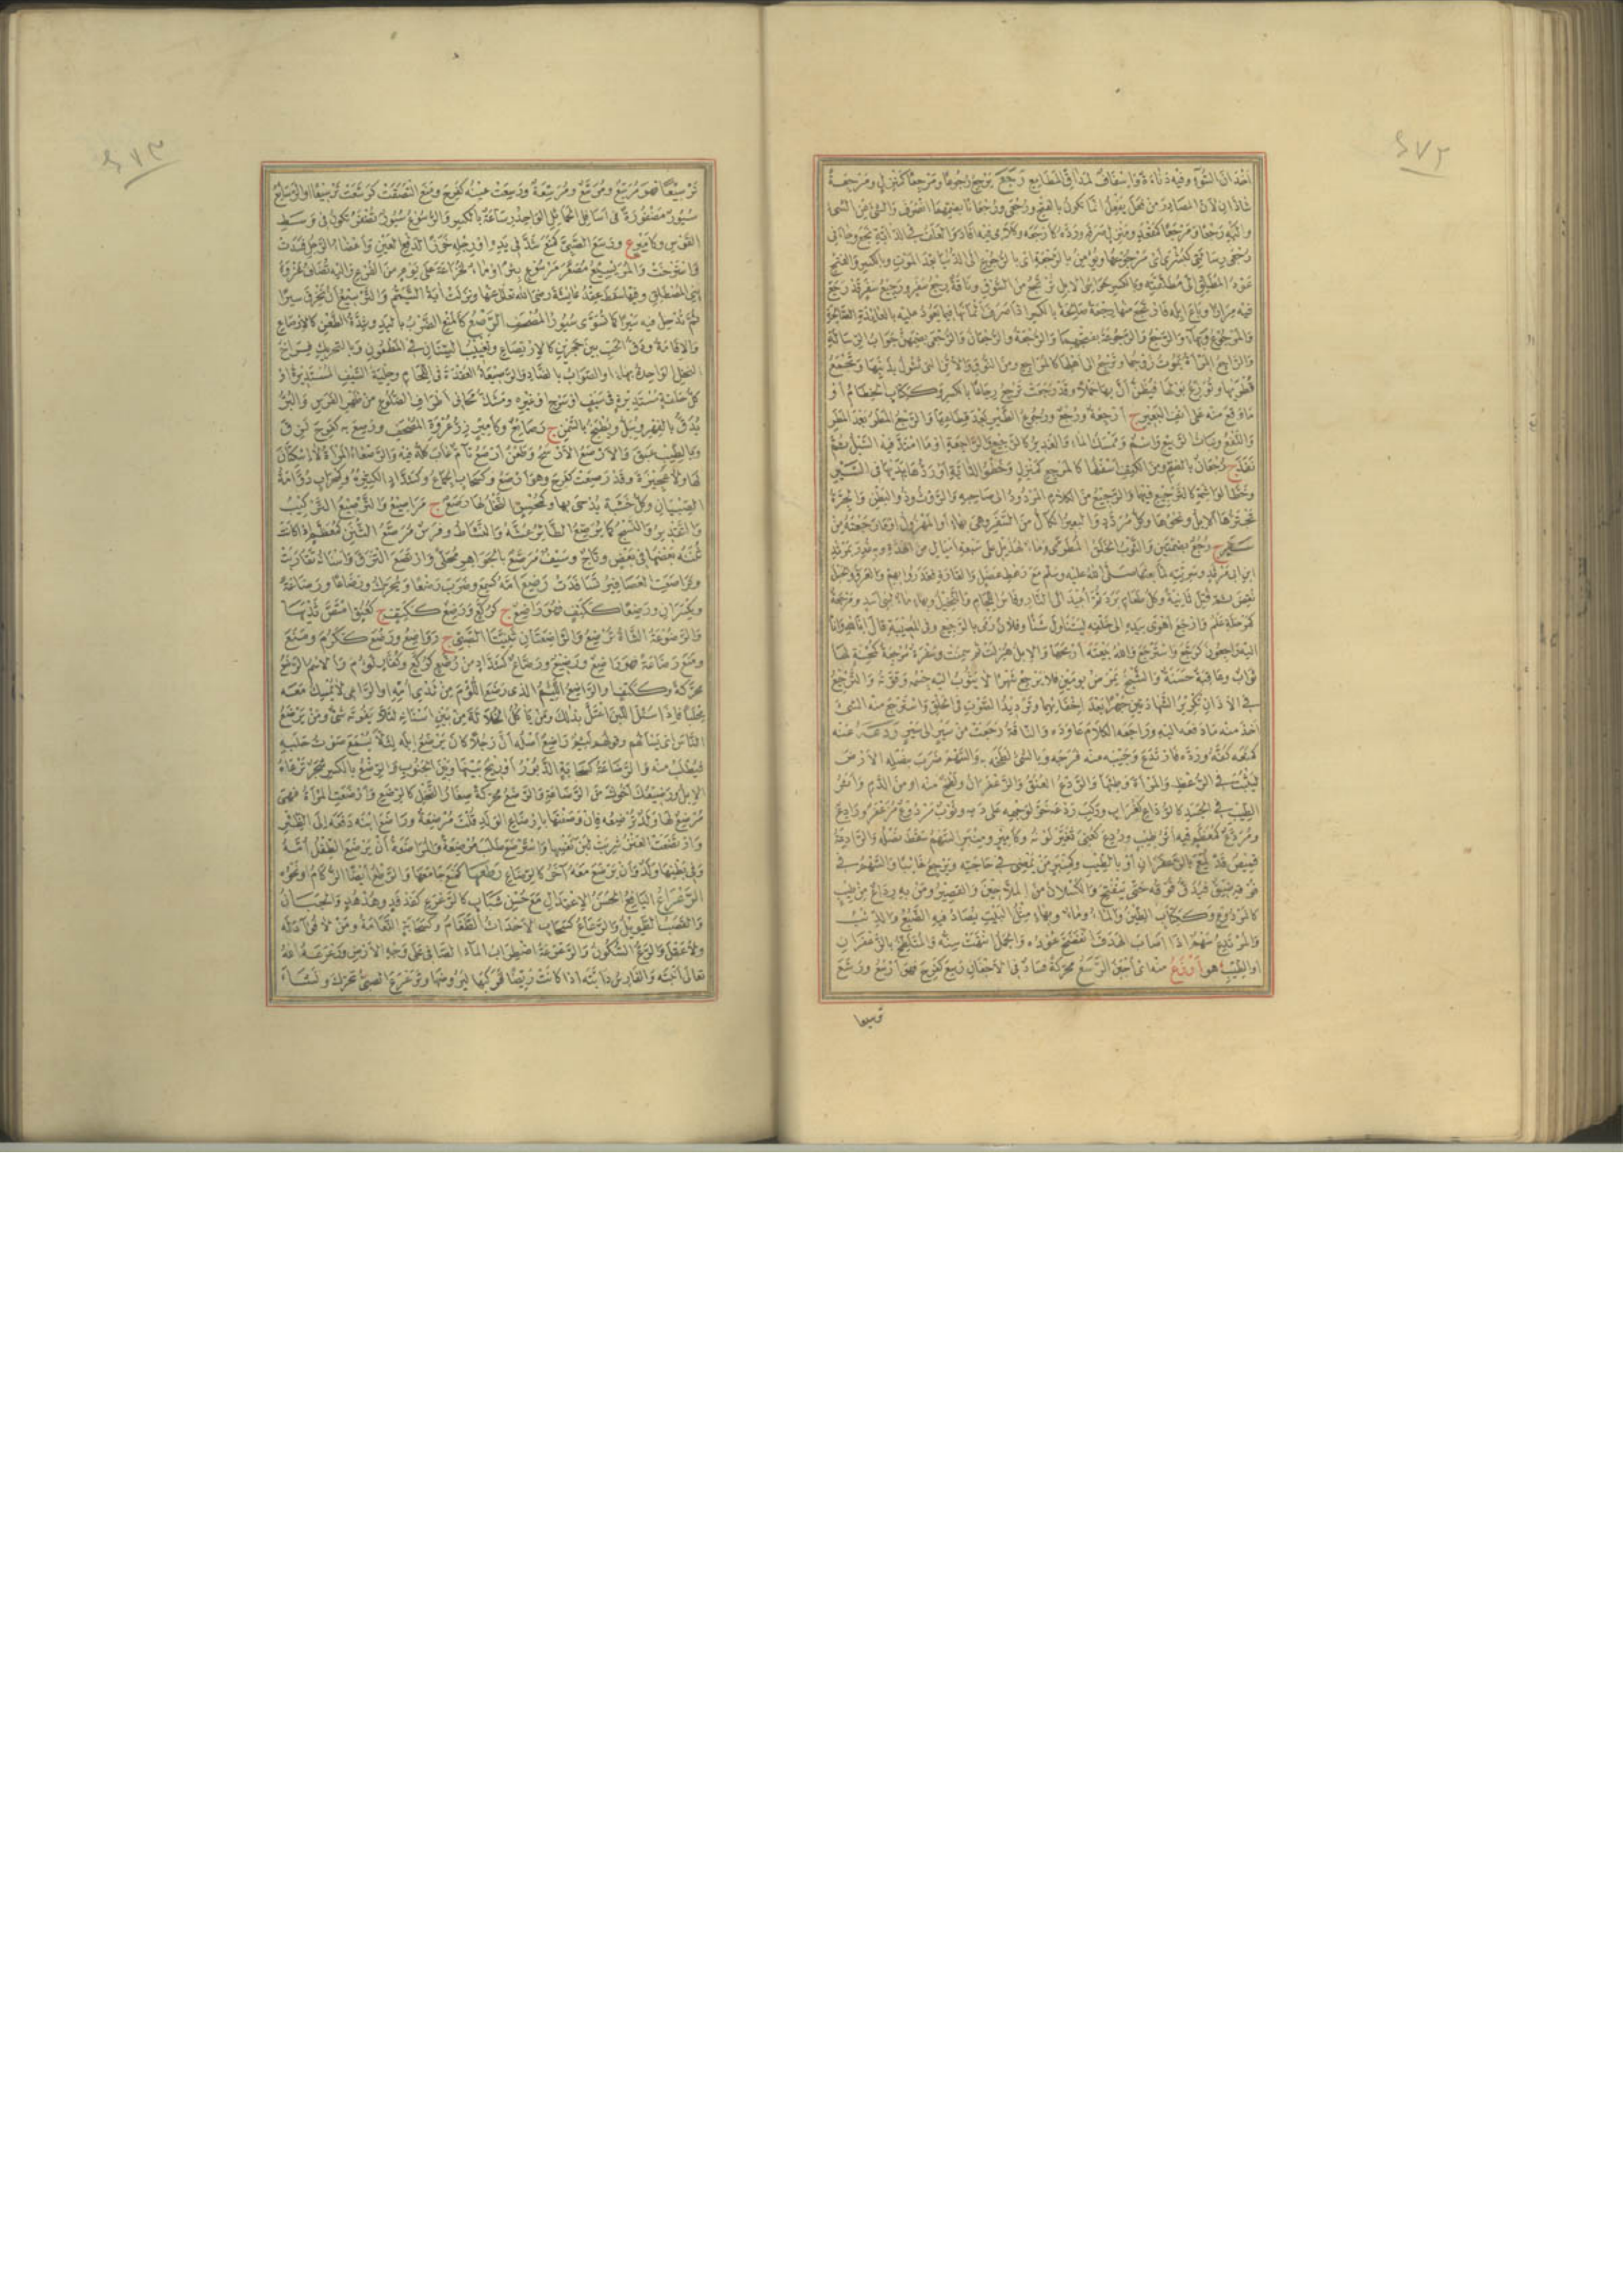 ٤٧٢
شاذ لان المصادر من فعل يفعل انما تكون بالفتح ورجعى ورجعانا بضمهما انصرف والشئ عن الشئ
واليه رجعا ومرجعا كمقعد ومنزل صرفه ورده كارجعه وكلامى فيه افاد والعلف فى الدابة نجع وجاءنى
رجعى رسالتى كبشرى اى مرجوعها ويؤمن بالرجعة اى بالرجوع الى الدنيا بعد الموت وبالكسر والفتح
عود المطلق الى مطلقته وبالكسر حواشى الابل ترتجع من السوق وناقة رجع سفر ورجيع سفر قد رجع
فيه مرارا وباع ابله فارتجع منها رجعة صالحة بالكسر اذا صرف اثمانها فيما يعود عليه بالعائدة الصالحة
والمرجوع وبهاء والرجع والرجوعة بفتحهما والرجعة والرجعان والرجعى بضمهن جواب الرسالة
والراجع المرأة يموت زوجها وترجع الى اهلها كالمراجع ومن النوق والاتن التى تشول بذنبها وتجمع
قطريها وتوزغ ببولها فيظن ان بها حملا وقد رجعت ترجع رجاعا بالكسر وككتاب الخطام او
ما وقع منه على انف البعير ج ارجعة ورجع ورجوع الطير بعد قطاعها والرجع المطر بعد المطر
والنفع ونبات الربيع واسم وممسك الماء والغدير كالرجيع والراجعة او ما امتد فيه السيل ثم
نفذ ج رجعان بالضم ومن الكتف اسفلها كالمرجع كمنزل وخطو الدابة او رد يديها فى السير
وخط الواشمة كالترجيع فيهما والرجيع من الكلام المردود الى صاحبه والروث وذو البطن والجرة
تجترها الابل ونحوها وكل مردد والبعير الكال من السفر وهى بهاء او المهزول
ج رجع بضمتين والثوب الخلق المطرى وماء لهذيل على سبعة اميال من الهدة وبه غدر بمرثد
ابن ابى مرثد وسريته لما بعثها صلى الله عليه وسلم مع رهط عضل والقارة فغدروا بهم والعرق والبخيل
كمرحلة علم وارجع اهوى بيده الى خلفه ليتناول شيئا وفلان رمى بالرجيع وفى المصيبة قال انا لله وانا
اليه راجعون كرجع واسترجع والله بيعته اربحها والابل هزلت ثم سمنت وسفرة مرجعة كمحسنة لها
ثواب وعاقبة حسنة والشيخ يمرض يومين فلا يرجع شهرا لا يثوب اليه جسمه وقوته والترجيع
فى الاذان تكرير الشهادتين جهرا بعد اخفائهما وترديد الصوت فى الحلق واسترجع منه الشئ
اخذ منه ما دفعه اليه وراجعه الكلام عاوده والناقة رجعت من سير الى سير ردعه عنه
كمنعه كفه ورده فارتدع وجيبه عنه فرجه وبالشئ لطخه به والسهم ضرب بنصله الارض
ليثبت فى الرعظ والمرأة وطئها والردع العنق والزعفران او لطخ منه او من الدم واثر
الطيب فى الجسد كالرداع كغراب وركب ردعه خر لوجهه على دمه وثوب مردوع مزعفر ورادع
ومردع كمعظم فيه اثر طيب وردع كعنى تغير لونه وكامير ومنبر السهم سقط نصله والرادعة
قميص قد لمع بالزعفران او بالطيب وكمنبر من يمضى فى حاجته ويرجع خائبا والسهم فى
فوقه ضيق فيدق فوقه حتى ينفتح والكسلان من الملاحين والقصير ومن به رداع من طيب
كالمردوع وككتاب الطين والماء وماء وبهاء مثل البيت يصاد فيه الضبع والذئب
والمرتدع سهم اذا اصاب الهدف انفضخ عوده والجمل انتهت سنه والمتلطخ بالزعفران
او الطيب هو اردع منه اى اجبن الرسع محركة فساد فى الاجفان رسع كفرح فهو ارسع ورسع
ترسيعا
٤٧٣
ترسيعا فهو مرسع ومرسع ومرسعة ورسعت عينه كفرح ومنع التصقت كرسعت ترسيعا او الرسائع
سيور مضفورة فى اسافل الحمائل الواحد رساعة بالكسر والرسوع سيور تضفر تكون فى وسط
القوس وكامير ع ورسع الصبى كمنع شد فى يده او رجله خرزا لدفع العين واعضاء الرجل فسدت
واسترخت والمريسيع مصغر مرسوع بئر او ماء لخزاعة على يوم من الفرع واليه تضاف غزوة
بنى المصطلق وفيها سقط عقد عائشة رضى الله تعالى عنها ونزلت اية التيمم والترسيع ان تخرق سيرا
ثم تدخل فيه سيرا كما تسوى سيور المصحف الرصع كالمنع الضرب باليد وشدة الطعن كالارصاع
والاقامة ودق الحب بين حجرين كالارتصاع وتغييب السنان فى المطعون وبالتحريك فراخ
النحل الواحدة بهاء او الصواب بالضاد والرصيعة العقدة فى اللجام وحلية السيف المستديرة او
كل حلقة مستديرة فى سيف او سرج او غيره ومشك محانى اطراف الضلوع من ظهر الفرس والبر
يدق بالفهر ويبل ويطبخ بالسمن ج رصائع وكامير زر عروة المصحف ورصع به كفرح لزق
وبالطيب عبق والارصع الارسح وطعن ارصع تام غاب كله فيه والرصعاء المرأة لا اسكتان
لها ولا عجيزة وقد رصعت كفرح وهو ارصع وكسحاب الجماع وكشداد الكثيره وكمحراب دوامة
الصبيان وكل خشبة يدحى بها ومحسن النحل لها رصع ج مراصيع والترصيع التركيب
والتقدير والنسج كما يرصع الطائر عشه والنشاط وفرس مرصع الثنن كمعظم اذا كانت
ثننه بعضها فى بعض وتاج وسيف مرصع بالجواهر محلى وارتصع التزق واسنانه تقاربت
وتراصعت العصافير تسافدت رضع امه كسمع وضرب رضعا ويحرك ورضاعا ورضاعة
ويكسران ورضعا ككتف فهو راضع ج كركع ورضع ككتف ج كعنق امتص ثديها
والرضوعة الشاة ترضع والراضعتان ثنيتا الصبى ج رواضع ورضع ككرم ومنع
ومنع رضاعة فهو راضع ورضيع ورضاع كشداد من رضع كركع وكفار لؤم والاسم الرضع
محركة وككتف والراضع اللئيم الذى رضع اللؤم من ثدى امه او الراعى لا يمسك معه
محلبا فاذا سئل اللبن اعتل بذلك ومن ياكل الخلالة من بين اسنانه لئلا يفوته شئ ومن يرضع
الناس اى يسألهم وقولهم لئيم راضع اصله ان رجلا كان يرضع ابله لئلا يسمع صوت حلبه
فيطلب منه والرضاعة كسحابة الدبور او ريح بينها وبين الجنوب والرضع بالكسر شجر ترعاه
الابل ورضيعك اخوك من الرضاعة والرضع محركة صغار النخل كالرضع وارضعت المرأة فهى
مرضع لها ولد ترضعه فان وصفتها بارضاع الولد قلت مرضعة وراضع ابنه دفعه الى الظئر
وارتضعت العنز شربت لبن نفسها واسترضع طلب مرضعة والمراضعة ان يرضع الطفل امه
وفى بطنها ولد وان يرضع معه اخر كالرضاع رطعها كمنع جامعها
الرعراع اليافع الحسن الاعتدال مع حسن شباب كالرعرع كفدفد وهدهد والجبان
والقصب الطويل والرعاع كسحاب الاحداث الطغام وكسحابة النعامة ومن لا فؤاد له
ولا عقل والرع السكون والرعرعة اضطراب الماء الصافى على وجه الارض ورعرعه الله
تعالى انبته والفارس دابته اذا كانت ريضا فركبها ليروضها وترعرع الصبى تحرك ونشأ